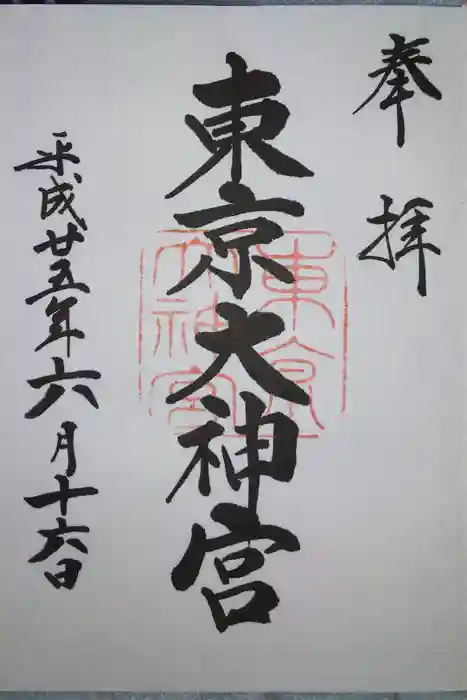 奉拝
東京大神宮
東京大神宮
平成廿五年六月十六日